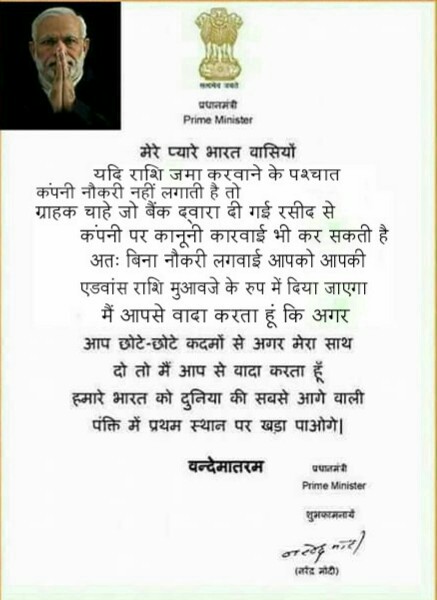 सत्यमेव जयते
प्रधानमंत्री
Prime Minister
मेरे प्यारे भारत वासियों
यदि राशि जमा करवाने के पश्चात
कंपनी नौकरी नहीं लगाती है तो
ग्राहक चाहे जो बैंक द्वारा दी गई रसीद से
कंपनी पर कानूनी कारवाई भी कर सकती है
अतः बिना नौकरी लगवाई आपको आपकी
एडवांस राशि मुआवजे के रुप में दिया जाएगा
मैं आपसे वादा करता हूं कि अगर
आप छोटे-छोटे कदमों से अगर मेरा साथ
दो तो मैं आप से वादा करता हूँ
हमारे भारत को दुनिया की सबसे आगे वाली
पंक्ति में प्रथम स्थान पर खड़ा पाओगे|
वन्देमातरम
प्रधानमंत्री
Prime Minister
शुभकामनायें
नरेन्द्र मोदी
(नरेंद्र मोदी)